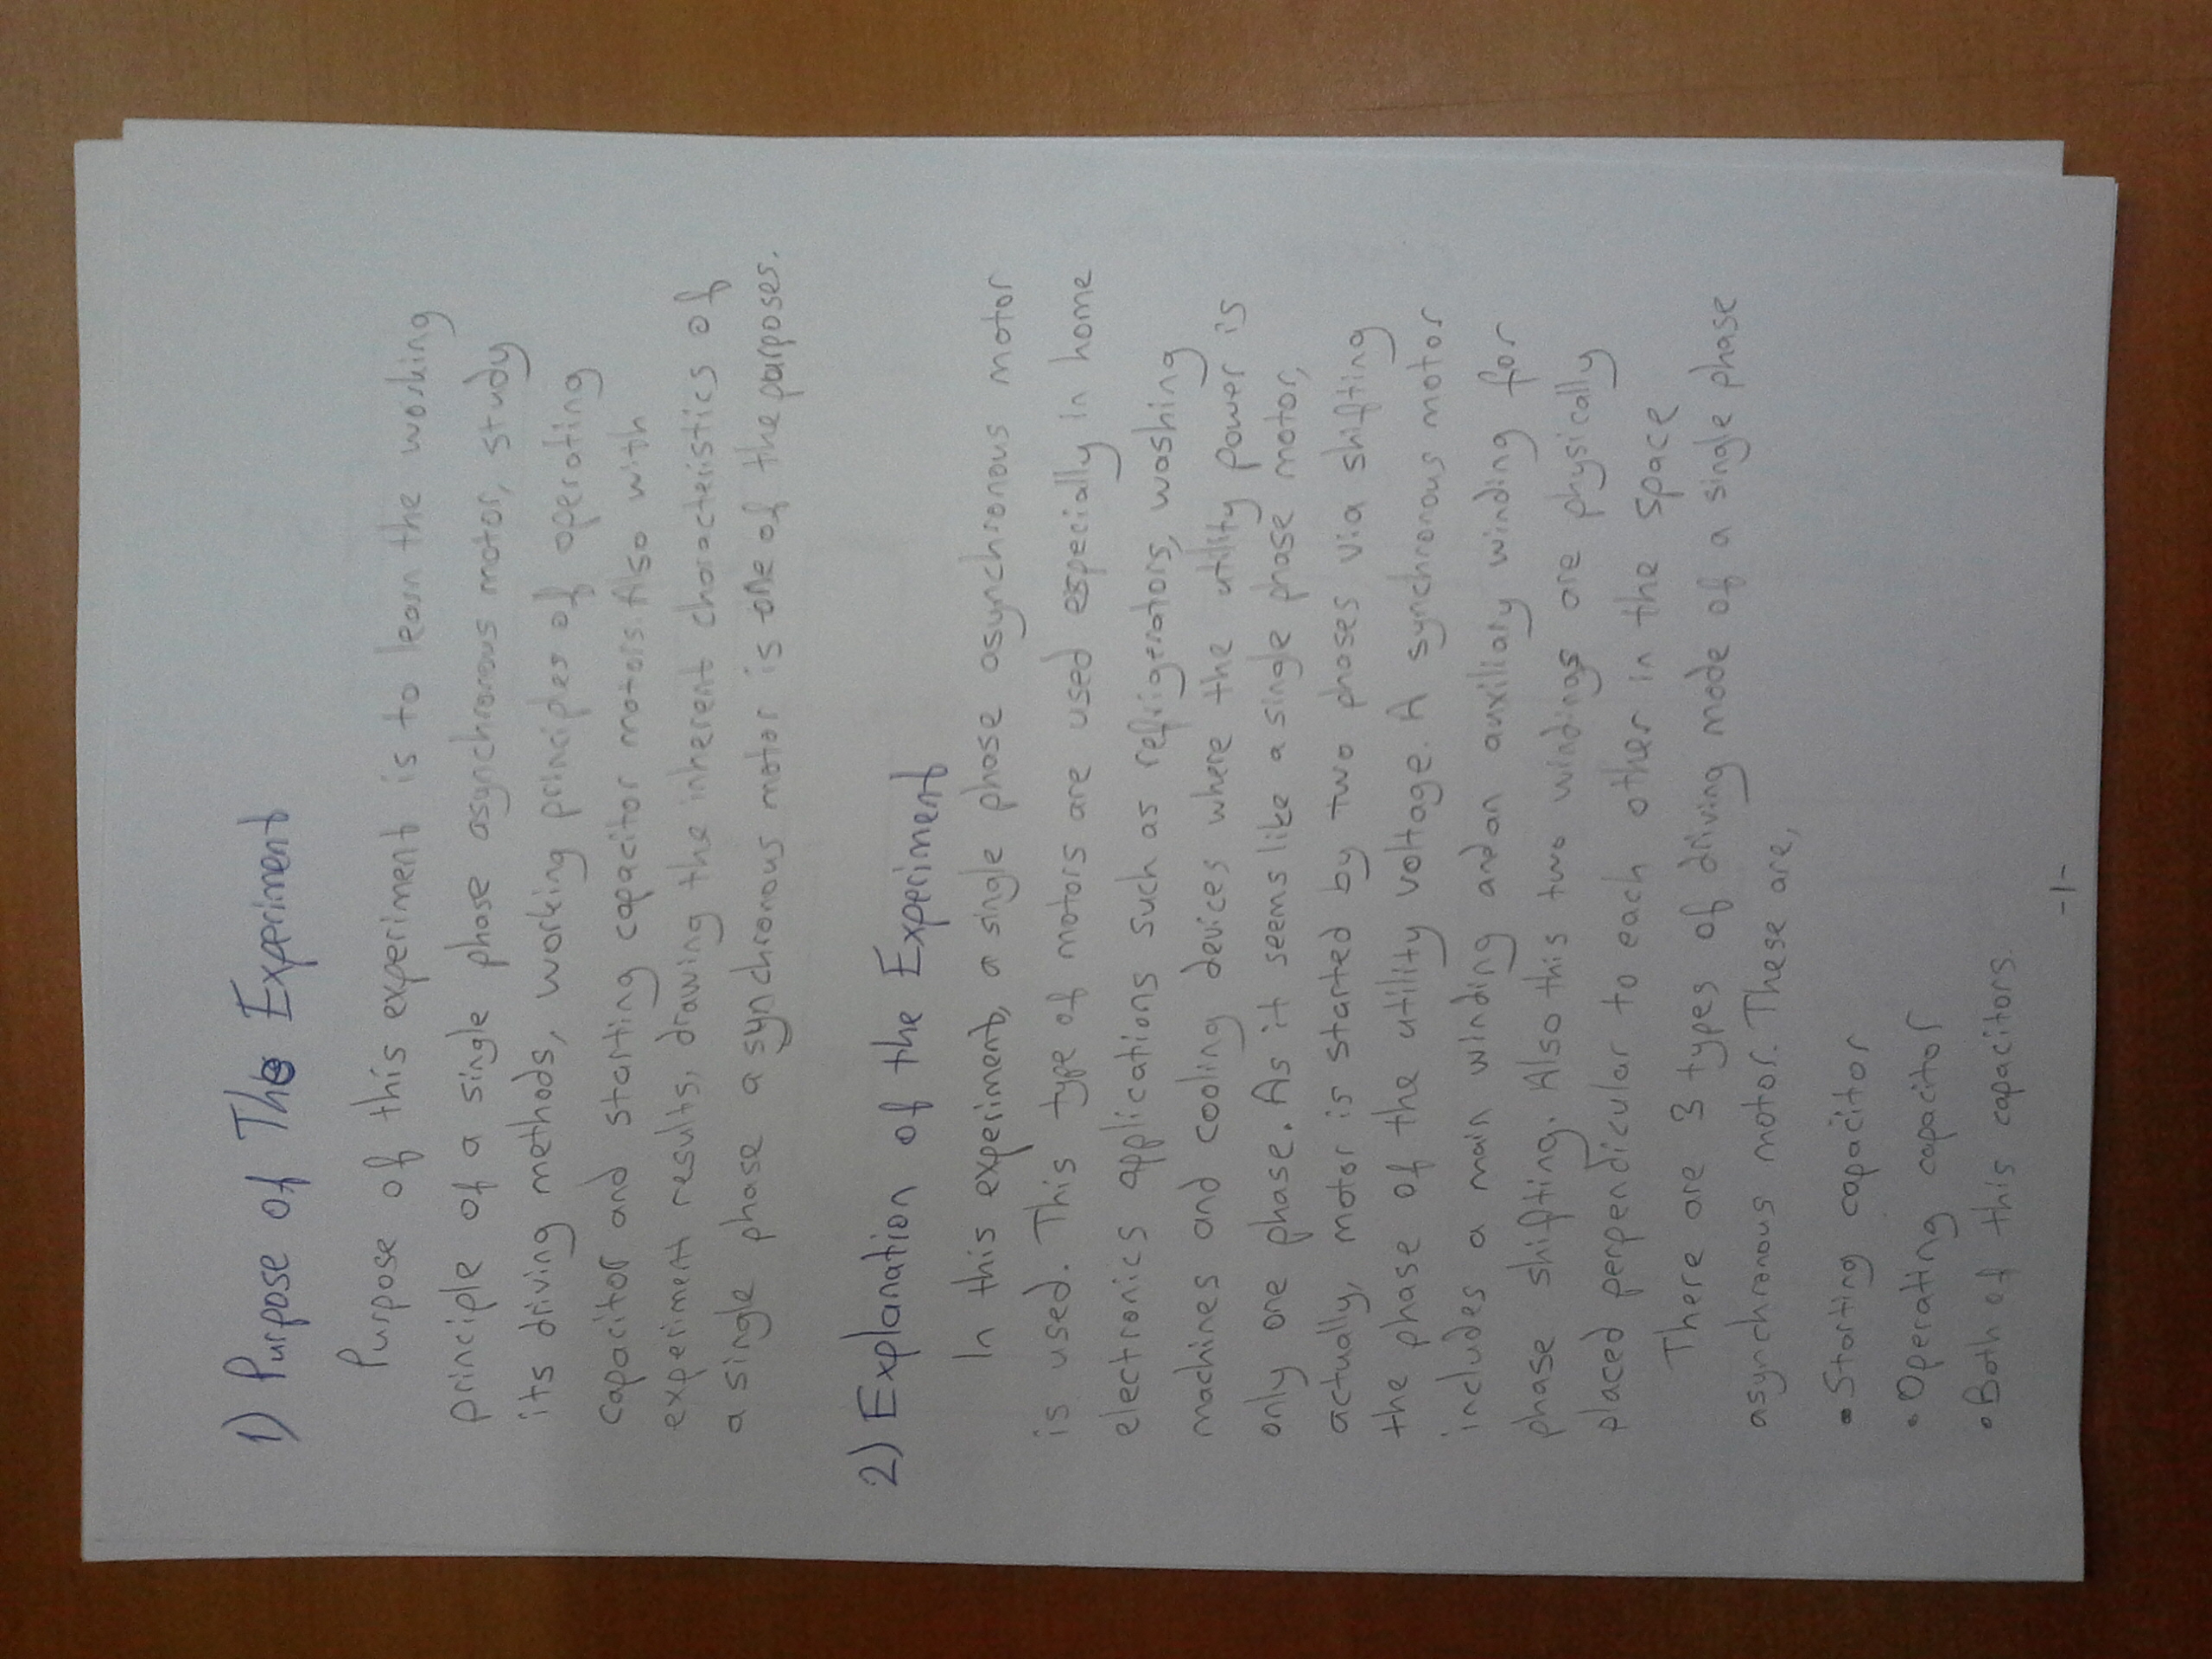 1) Purpose of The Experiment
Purpose of this experiment is to learn the working
principle of a single phase asynchronous motor, study
its driving methods, working principles of operating
capacitor and starting capacitor motors. Also with
experiment results, drawing the inherent characteristics of
a single phase asynchronous motor is one of the purposes.
2) Explanation of the Experiment
In this experiment, a single phase asynchronous motor
is used. This type of motors are used especially in home
electronics applications such as refrigerators, washing
machines and cooling devices where the utility power is
only one phase. As it seems like a single phase motor,
actually, motor is started by two phases via shifting
the phase of the utility voltage. A synchronous motor
includes a main winding and an auxiliary winding for
phase shifting. Also this two windings are physically
placed perpendicular to each other in the space
There are 3 types of driving mode of a single phase
asynchronous motor. These are,
• Starting capacitor
• Operating capacitor
• Both of this capacitors.
-1-